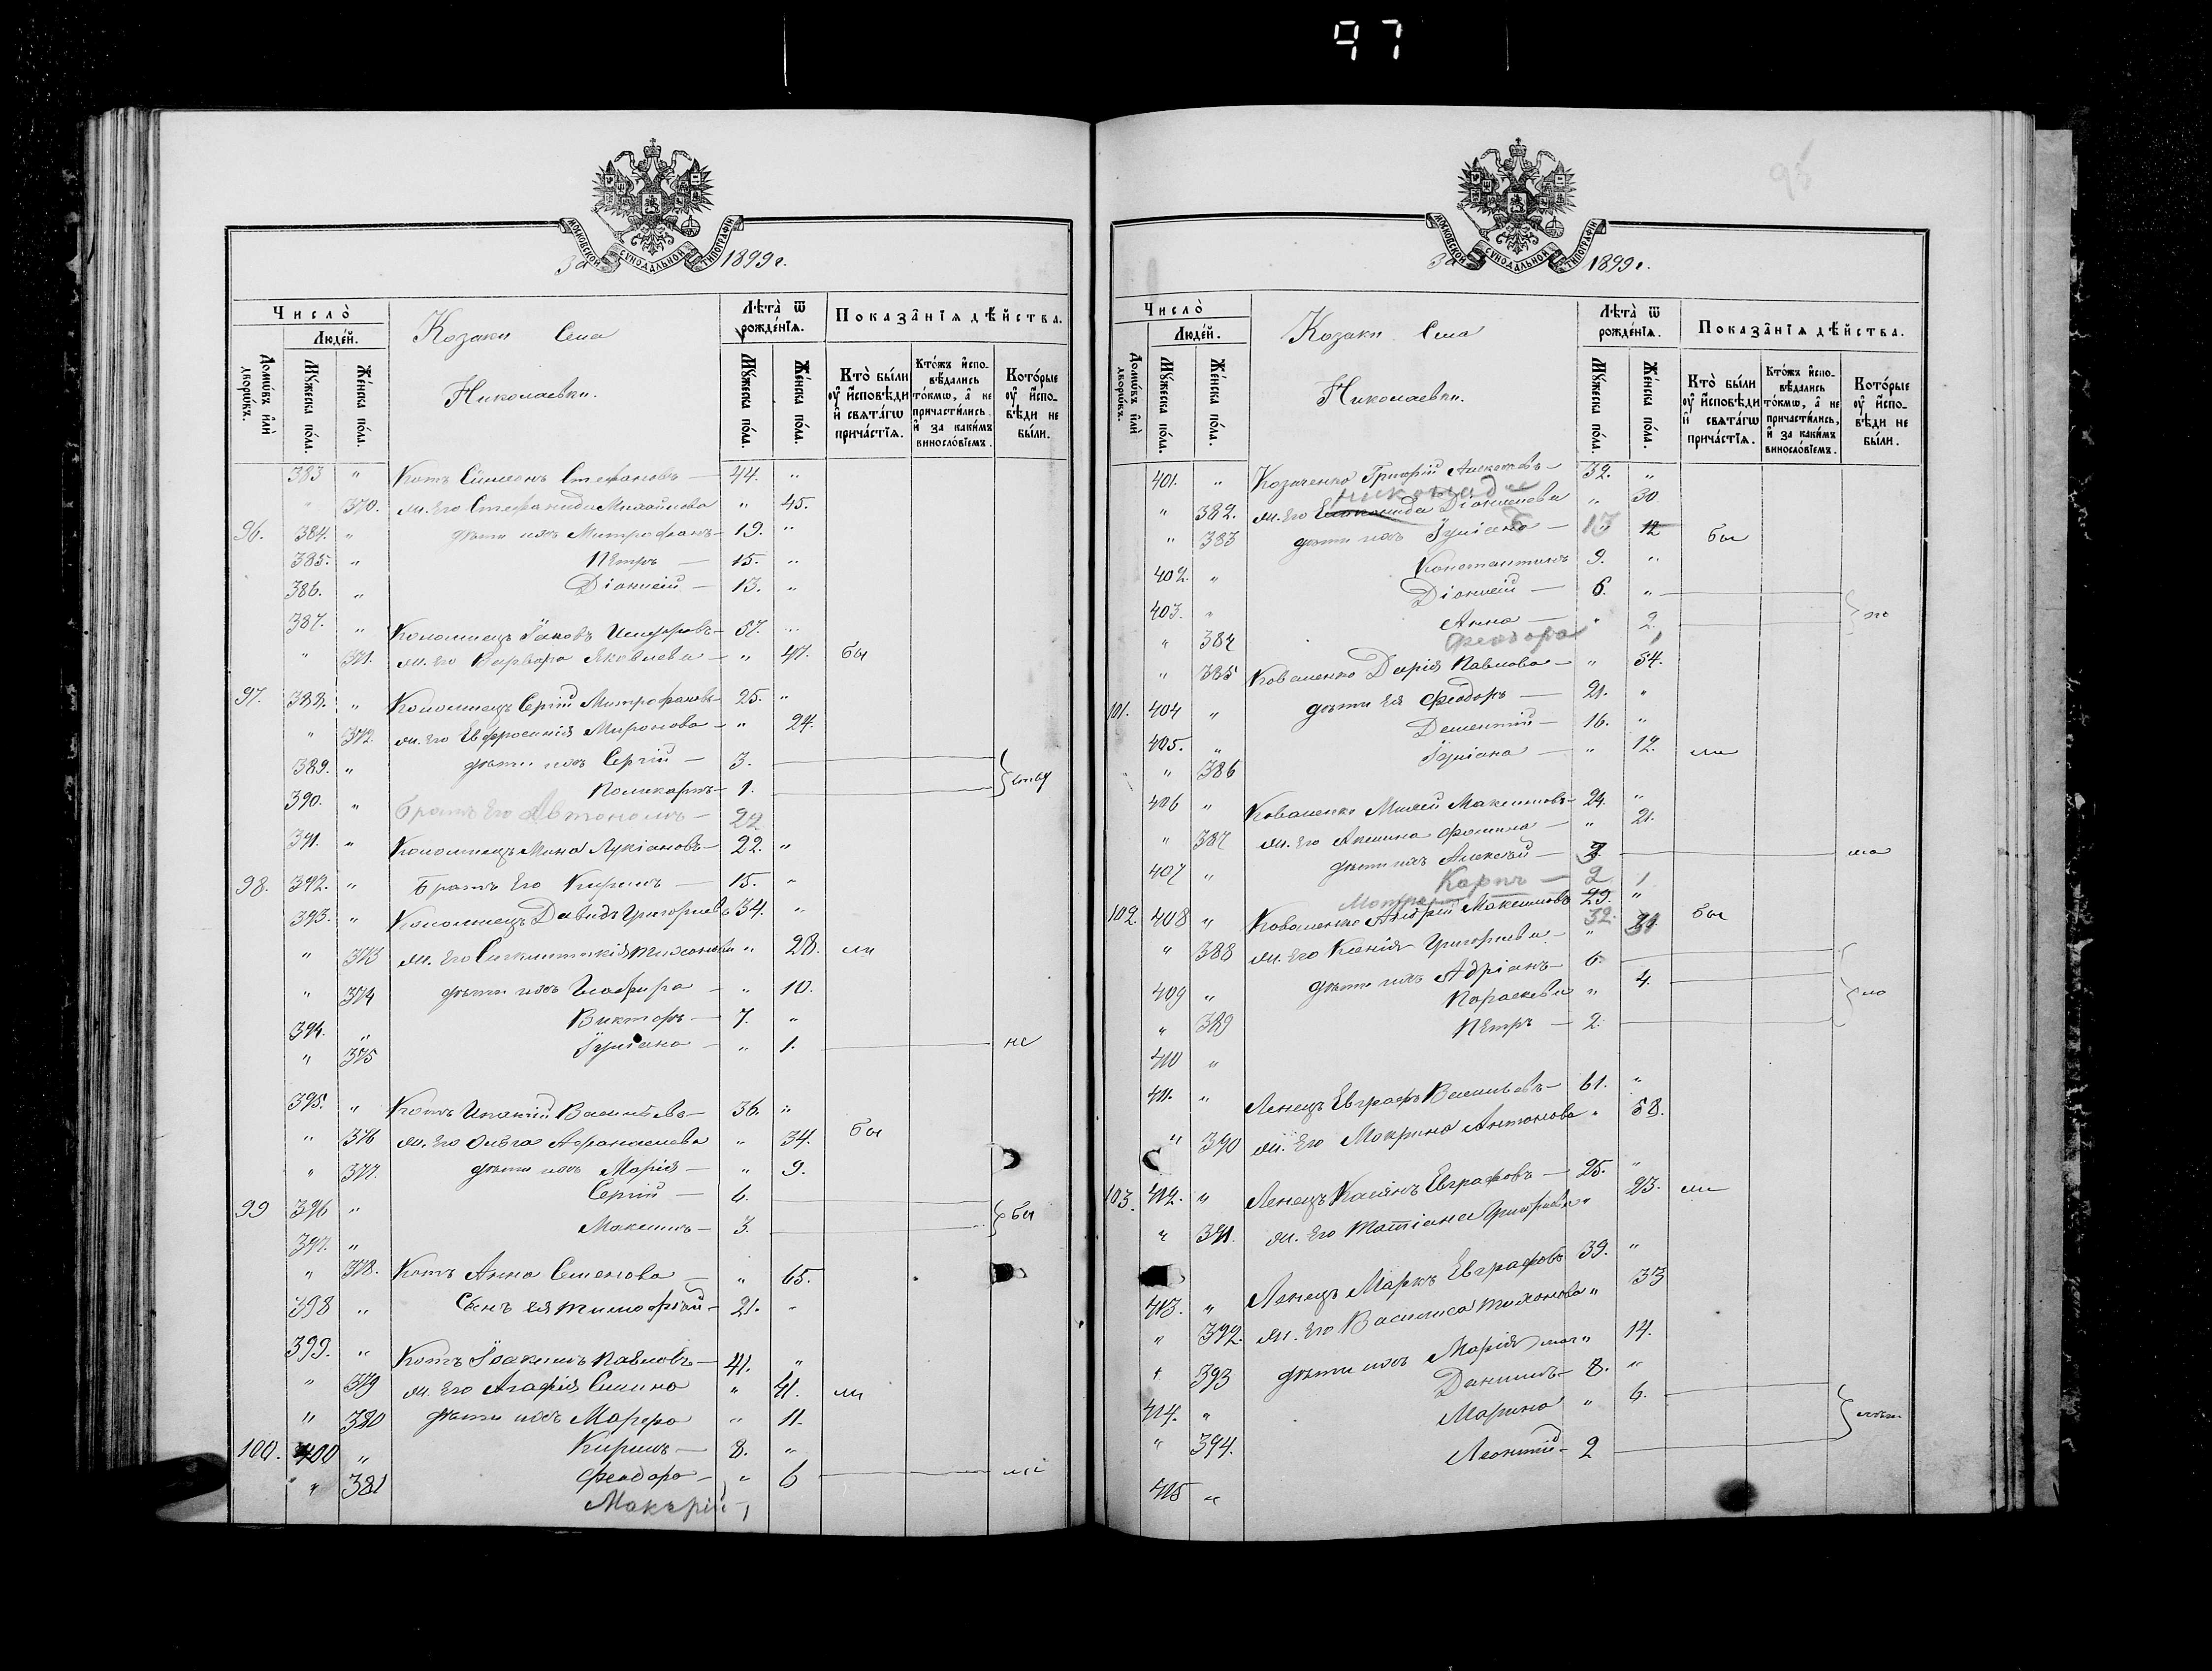 97
95
МОСКОВСКОЙ СѴНОДАЛЬНОЙ ТИПОГРАФІИ
За 1899 г.
Число̀
Людей.
Домѡвъ илѝ дворѡвъ.
Мꙋжеска пола.
Женска пола.
Козаки Села
Николаевки.
Лѣта̀ ѿ рожденїѧ.
Мꙋжеска пола.
Женска пола.
Показанїѧ дѣйства.
Кто̀ были оу҆ исповѣди и҆ свѧтагѡ причастїѧ.
Ктожъ исповѣдались токмѡ, а҆ не причастились, и҆ за какимъ винословїемъ.
Которые оу҆ исповѣди не были.
383 " Котъ Симеонъ Стефановъ — 44. "
" 370. ж. Его Стефанида Михайлова " 45.
96. 384. " дѣти ихъ Митрофанъ — 19. "
385. " Петръ — 15. "
386. " Діонисій — 13. "
387. " Коломиецъ Іаковъ — 57. "
" 371. ж. Его Варвара Яковлева — " 47. бы
97. 388. " Коломиецъ Сергій Митрофановъ — 25. "
" 372. ж. Его Евфросинія Миронова — " 24.
389. " дѣти ихъ Сергій — 3.
390. " Поликарпъ — 1.
Братъ Его Автономъ — 22
391. " Коломиецъ Мина Лукіановъ — 22. "
98. 392. " Братъ Его Кириллъ — 15. "
393. " Коломиецъ Давидъ Григорьевъ 34. "
" 373 ж. Его Синклитикія Тихонова " 28. ли
" 374 дѣти ихъ Глафира — " 10.
394. " Викторъ — 7. "
" 375 Іуліана — " 1. не
395. " Котъ Ипатій Васильевъ — 36. "
" 376 ж. Его Ольга Афанасіева " 34. бы
" 377. дѣти ихъ Марія — " 9.
99 396 " Сергій — 6.
397. " Максимъ — 3. бы
" 378. Котъ Анна Семенова — " 65.
398 " Сынъ ея Тимофѣй — 21. "
399. " Котъ Іоакимъ Павловъ — 41. "
" 379 ж. Его Агафія Силина " 41. ли
" 380 дѣти ихъ Марфа " 11.
100. 400 " Кириллъ — 8. "
" 381 Феодора — " 6
Макарій — 1
За 1899 г.
Число̀
Людей.
Домѡвъ илѝ дворѡвъ.
Мꙋжеска пола.
Женска пола.
Козаки Села
Николаевки.
Лѣта̀ ѿ рожденїѧ.
Мꙋжеска пола.
Женска пола.
Показанїѧ дѣйства.
Кто̀ были оу҆ исповѣди и҆ свѧтагѡ причастїѧ.
Ктожъ исповѣдались токмѡ, а҆ не причастились, и҆ за какимъ винословїемъ.
Которые оу҆ исповѣди не были.
401. " Козаченко Григорій Алексѣевъ — 32. "
" 382. ж. Его Діонисіева " 30
" 383 дѣти ихъ Іуліана — 12 бы
402. " Константинъ 9. "
403. " Діонисій — 6. "
" 384 Анна — " 2.
Феодора 1
" 385 Коваленко Дарія Павлова — " 54.
101. 404 " дѣти Ея Феодоръ — 21. "
405. " Дементій — 16. "
" 386 Іуліана — " 12. ли
406 " Коваленко Моисей Максимовъ — 24. "
" 387 ж. Его Акилина Фомина — " 21.
407 " дѣти ихъ Алексѣй — 3
Карпъ — 2
1
102. 408 " Коваленко Андрей Максимовъ 29. " бы
32.
" 388 ж. Его Ксенія Григорьева — " 31
409 " дѣти ихъ Адріанъ — 6
" 389 Параскева " 4.
410 " Петръ — 2.
411. " Ленецъ Евграфъ Васильевъ — 61. "
" 390 ж. Его Макрина Антонова " 58.
103. 412. " Ленецъ Касіянъ Евграфовъ — 25. "
" 391. ж. Его Татіана Григорьева " 23. ли
413. " Ленецъ Маркъ Евграфовъ 39. "
" 392. ж. Его Василиса Тихонова " 33
" 393 дѣти ихъ Марія " 14.
414. " Даніилъ — 8. "
" 394. Марина " 6.
415 " Леонтій — 2